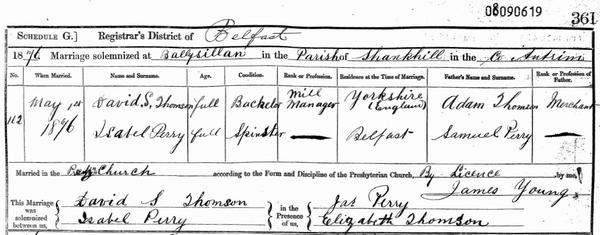 08090619
361
SCHEDULE G.] Registrar's District of Belfast
1896 Marriage solemnized at Ballysillan in the Parish of Shankhill in the Co Antrim
No. When Married. Name and Surname. Age. Condition. Rank or Profession. Residence at the Time of Marriage. Father's Name and Surname. Rank or Profession of Father.
112 May 1st 1896 David S, Thomson full Bachelor Mill Manager Yorkshire (England) Adam Thomson Merchant
Isabel Perry full Spinster — Belfast Samuel Perry —
Married in the Presby Church according to the Form and Discipline of the Presbyterian Church, By Licence by me,
James Young
This Marriage was solemnized between us, David S Thomson Isabel Perry in the Presence of us, Jas Perry Elizabeth Thomson